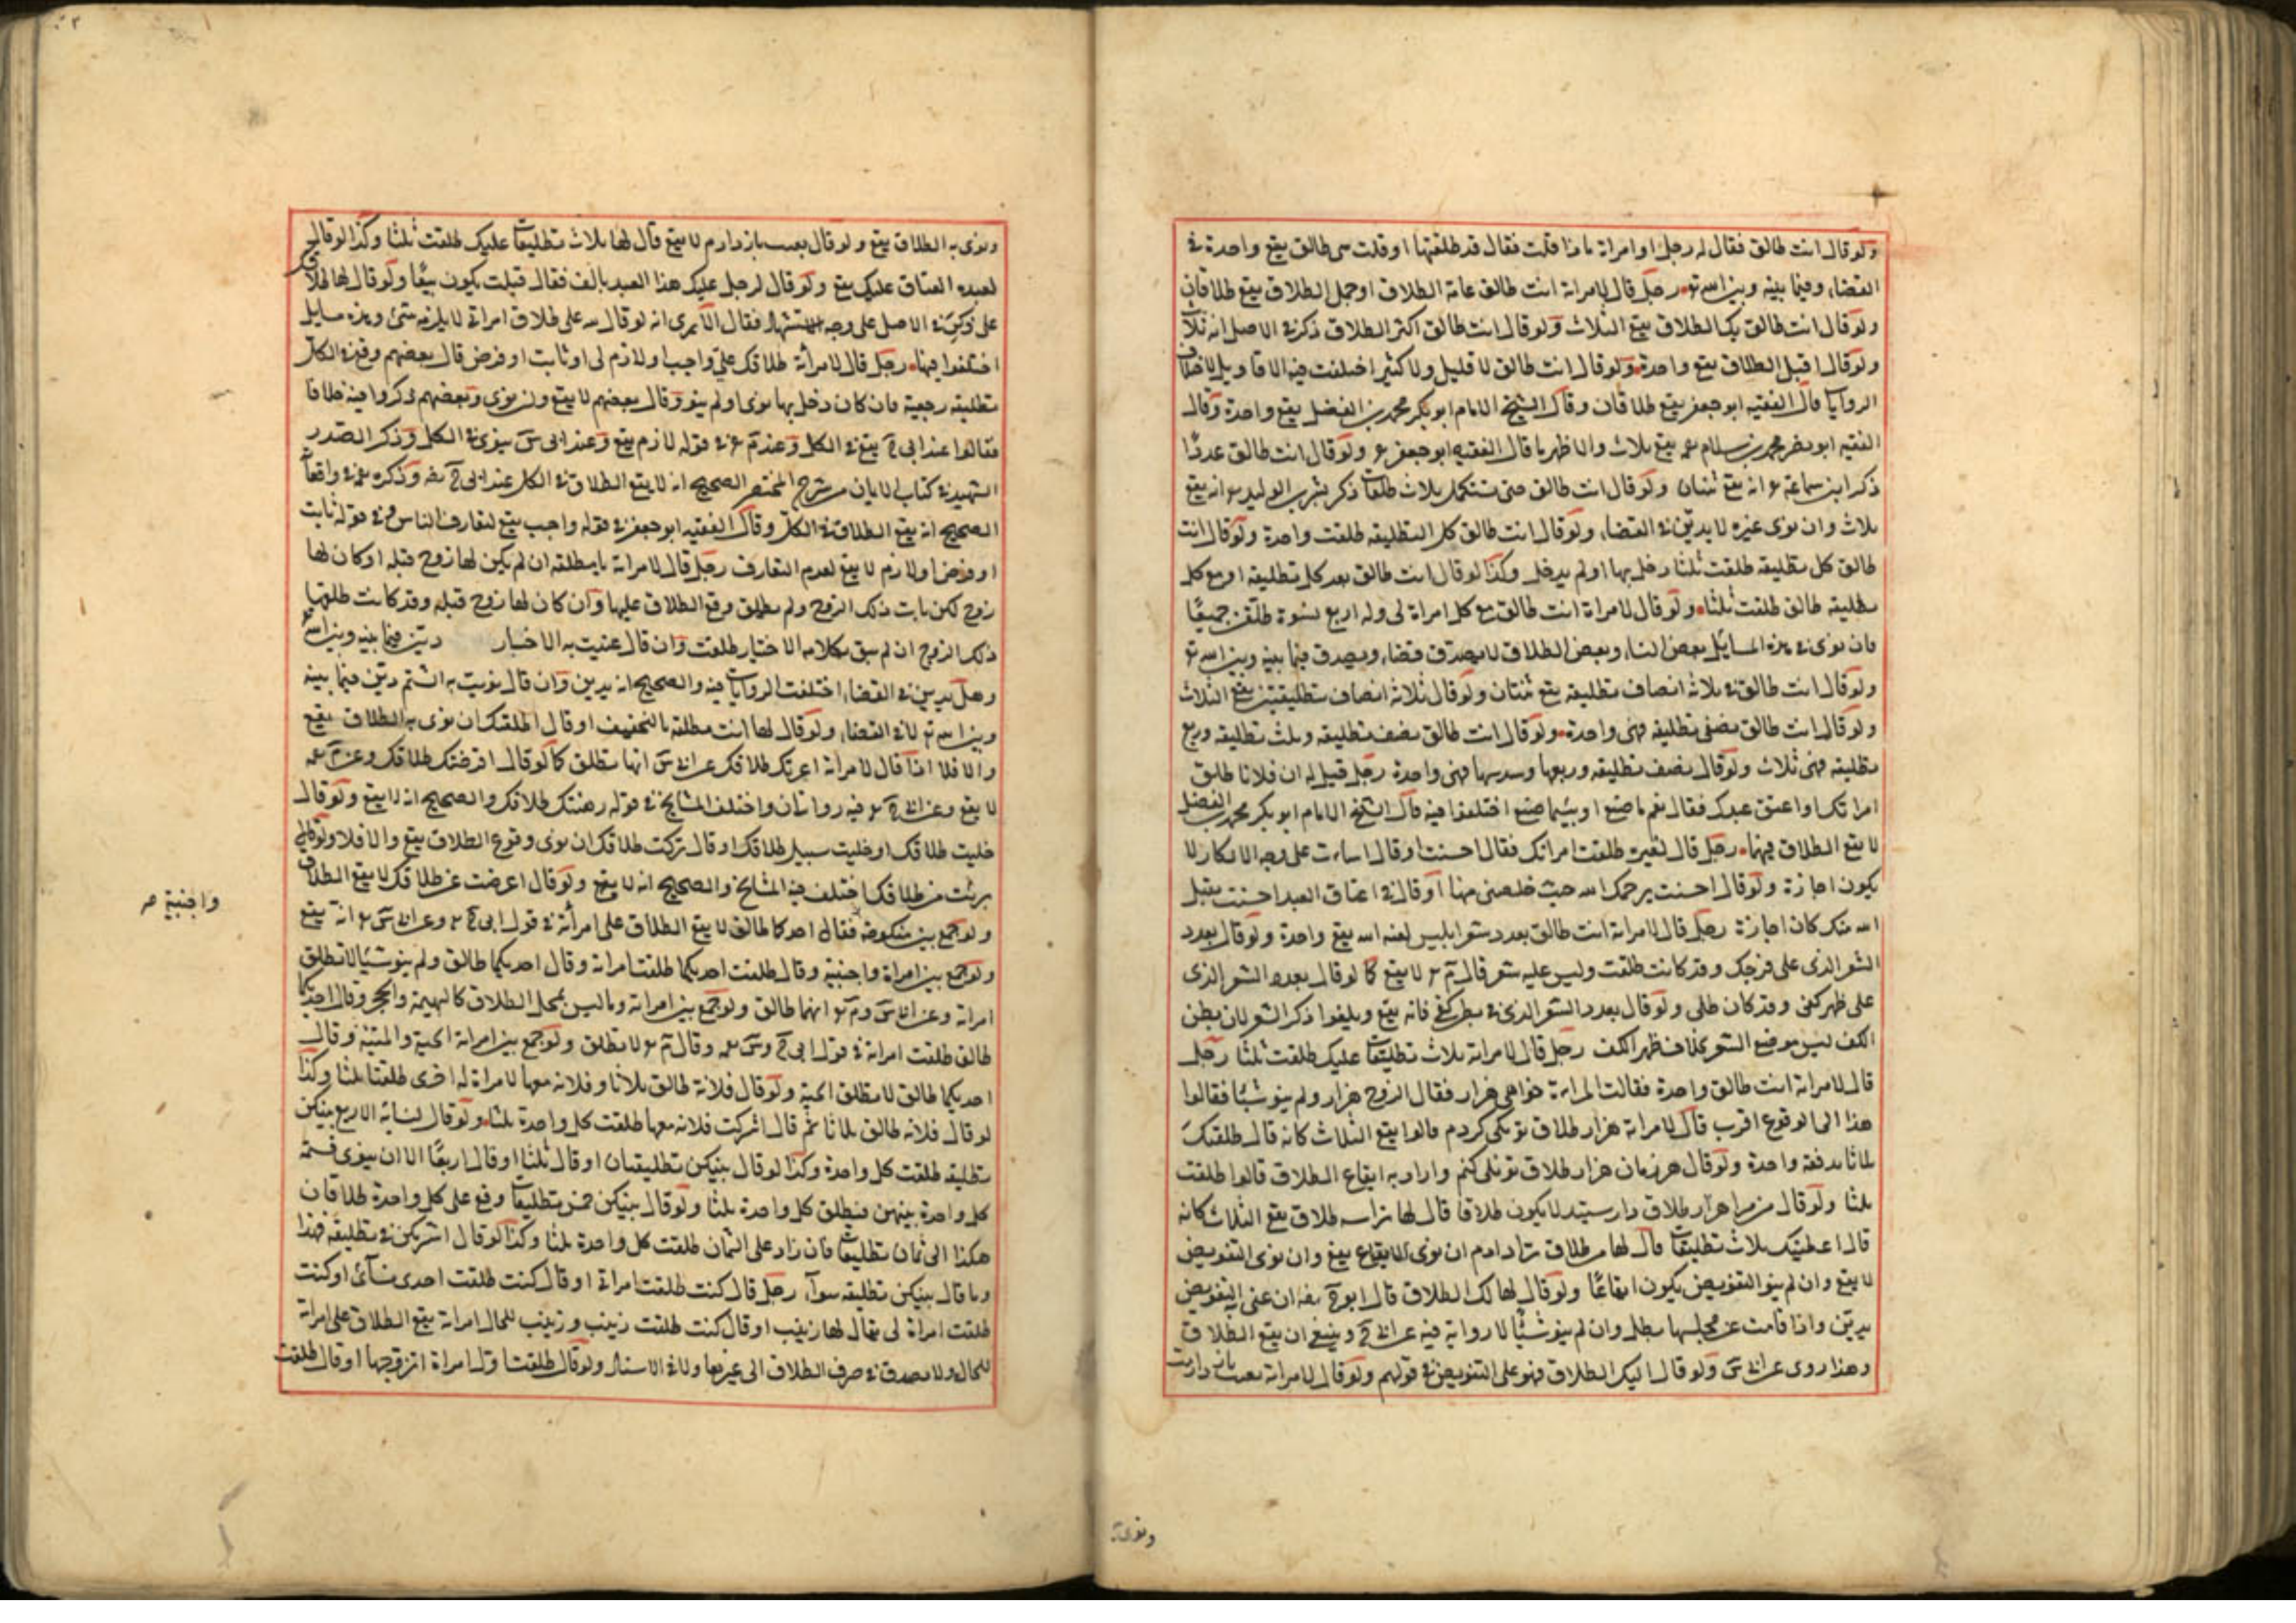 ولو قال انت طالق فقال له رجل او امراة ماذا قلت فقال قد طلقتها او قلت هى طالق يقع واحدة فى
القضاء وفيما بينه وبين الله تع رجل قال لامراته انت طالق عامة الطلاق او جل الطلاق يقع طلاقان
ولو قال انت طالق كل الطلاق يقع الثلاث ولو قال انت طالق اكثر الطلاق ذكر فى الاصل انه ثلاث
ولو قال اقبل الطلاق يقع واحدة ولو قال انت طالق لا قليل ولا كثير اختلفت فيه الاقاويل لاختلاف
الروايات قال الفقيه ابو جعفر يقع طلاقان وقال الشيخ الامام ابو بكر محمد بن الفضل يقع واحدة وقال
الفقيه ابو نصر محمد بن سلام يقع ثلاث والاظهر ما قال الفقيه ابو جعفر ولو قال انت طالق عددا
ذكر ابن سماعة انه يقع ثنتان ولو قال انت طالق حتى تستكمل ثلاث طلقات ذكر بشر بن الوليد انه يقع
ثلاث وان نوى غيره لا يدين فى القضاء ولو قال انت طالق كل التطليقة طلقت واحدة ولو قال انت
طالق كل تطليقة طلقت ثلثا دخل بها او لم يدخل وكذا لو قال انت طالق بعد كل تطليقة او مع كل
تطليقة طالق طلقت ثلثا ولو قال لامراة انت طالق مع كل امراة لى وله اربع نسوة طلقن جميعا
فان نوى فى هذه المسايل بعض النساء وبعض الطلاق لا يصدق قضاء ويصدق فيما بينه وبين الله تع
ولو قال انت طالق ثلاثة انصاف تطليقة يقع ثنتان ولو قال ثلاثة انصاف تطليقتين يقع الثلاث
ولو قال انت طالق نصفى تطليقة فهى واحدة ولو قال انت طالق نصف تطليقة وثلث تطليقة وربع
تطليقة فهى ثلاث ولو قال نصف تطليقة وربعها وسدسها فهى واحدة رجل قيل له ان فلانا طلق
امراتك او اعتق عبدك فقال نعم ما صنع او بئسما صنع اختلفوا فيه قال الشيخ الامام ابو بكر محمد بن الفضل
لا يقع الطلاق فيهما رجل قال لغيره طلقت امراتك فقال احسنت او قال اسأت على وجه الانكار لا
يكون اجازة ولو قال احسنت يرحمك الله حيث خلصتنى منها او قال فى اعتاق العبد احسنت تقبل
الله منك كان اجازة رجل قال لامراته انت طالق بعدد شعر ابليس لعنه الله يقع واحدة ولو قال بعدد
الشعر الذى على فرجك وقد كانت طلت وليس عليه شعر قال لا يقع كما لو قال بعدد الشعر الذى
على ظهر كفى وقد كان طلى ولو قال بعدد الشعر الذى فى بطن كفى فانه يقع ويلغوا ذكر الشعر لان بطن
الكف ليس موضع الشعر بخلاف ظهر الكف رجل قال لامراته ثلاث تطليقات عليك طلقت ثلثا رجل
قال لامراته انت طالق واحدة فقالت المراة خواهى هزار فقال الزوج هزار ولم ينو شيئا فقالوا
هذا الى الوقوع اقرب قال لامراته هزار طلاق تو يكى كردم قالوا يقع الثلاث كانه قال طلقتك
ثلاثا بدفعة واحدة ولو قال هر زمان هزار طلاق تو يكى كنم واراد به ايقاع الطلاق قالوا طلقت
ثلثا ولو قال هزار طلاق لا يكون طلاقا قال لها ترا سه طلاق يقع الثلاث كانه
قال اعطيتك ثلاث تطليقات قال لها طلاق ترا دادم ان نوى الايقاع يقع وان نوى التفويض
لا يقع وان لم ينو التفويض يكون ايقاعا ولو قال لها لك الطلاق قال ابو ح ان عنى التفويض
يدين واذا قامت عن مجلسها بطل وان لم ينو شيئا لا رواية فيه عن ابى ح وينبغى ان يقع الطلاق
وهذا روى عن ابى س ولو قال اليك الطلاق فهو على التفويض فى قولهم ولو قال لامراته
ونوى به
ونوى به الطلاق يقع ولو قال باز دادم لا يقع قال لها ثلاث تطليقات عليك طلقت ثلثا وكذا لو قال
لعبده العتاق عليك يقع ولو قال لرجل عليك هذا العبد بالف فقال قبلت يكون بيعا ولو قال لها طلاقك
على ذكر فى الاصل على وجه الاستشهاد فقال الا يرى انه لو قال لله على طلاق امراتى لا يلزمه شئ وهذه مسايل
اختلفوا فيها رجل قال لامرأته طلاقك على واجب او لازم لى او ثابت او فرض قال بعضهم وقع فى الكل
تطليقة رجعية فان كان دخل بها نوى او لم ينو وقال بعضهم لا يقع وان نوى وبعضهم ذكروا فيه خلافا
فقالوا عند ابى ح يقع فى الكل وعند م فى قوله لازم يقع وعند ابى س ينوى فى الكل وذكر الصدر
الشهيد فى كتاب الايمان من شرح المختصر الصحيح انه لا يقع الطلاق فى الكل عند ابى ح وذكر فى واقعاته
الصحيح انه يقع الطلاق فى الكل وقال الفقيه ابو جعفر فى قوله واجب يقع لتعارف الناس وفى قوله ثابت
او فرض او لازم لا يقع لعدم التعارف رجل قال لامراته يا مطلقة ان لم يكن لها زوج قبله او كان لها
زوج لكن مات ذلك الزوج ولم يطلق وقع الطلاق عليها وان كان لها زوج قبله وقد كانت طلقها
ذلك الزوج ان لم ينو بكلامه الاخبار طلقت وان قال عنيت به الاخبار دين فيما بينه وبين الله تع
وهل يدين فى القضاء اختلفت الروايات فيه والصحيح انه يدين وان قال نويت به الشتم دين فيما بينه
وبين الله تع لا فى القضاء ولو قال لها انت مطلقة بالتخفيف او قال اطلقتك ان نوى به الطلاق يقع
والا فلا اذا قال لامراته اعرتك طلاقك عن ابى س انها تطلق كما لو قال اقرضتك طلاقك وعن م
لا يقع وعن ابى ح فيه روايتان واختلف المشايخ فى قوله رهنتك طلاقك والصحيح انه لا يقع ولو قال
خليت طلاقك او خليت سبيل طلاقك او قال تركت طلاقك ان نوى وقوع الطلاق يقع والا فلا ولو قال
برئت من طلاقك اختلف فيه المشايخ والصحيح انه لا يقع ولو قال اعرضت عن طلاقك لا يقع الطلاق
ولو جمع بين منكوحة فقال احدكما طالق لا يقع الطلاق على امرأته فى قول ابى ح وعن ابى س انه يقع
واجنبية صح
ولو جمع بين امراة واجنبية وقال طلقت احديكما طلقت امراته وقال احديكما طالق ولم ينو شيئا لا تطلق
امراته وعن ابى س و م انها طالق ولو جمع بين امراته وما ليس بمحل الطلاق كالبهيمة والحجر وقال احديكما
طالق طلقت امراته فى قول ابى ح و س وقال م لا تطلق ولو جمع بين امراته الحية والميتة وقال
احديكما طالق لا تطلق الحية ولو قال فلانة طالق ثلاثا وفلانة معها لامراة له اخرى طلقتا ثلثا وكذا
لو قال فلانة طالق ثلاثا ثم قال اشركت فلانة معها طلقت كل واحدة ثلثا ولو قال لنسائه الاربع بينكن
تطليقة طلقت كل واحدة وكذا لو قال بينكن تطليقتان او قال ثلثا او قال اربعا الا ان ينوى قسمة
كل واحدة بينهن فتطلق كل واحدة ثلثا ولو قال بينكن خمس تطليقات وقع على كل واحدة طلاقان
هكذا الى ثمان تطليقات فان زاد على الثمان طلقت كل واحدة ثلثا وكذا لو قال اشركتكن فى تطليقة فهذا
وما قال بينكن تطليقة سوآء رجل قال كنت طلقت امراة او قال كنت طلقت احدى نسآئى او كنت
طلقت امراة لى يقال لها زينب او قال كنت طلقت زينب وزينب للحال امراته يقع الطلاق على امراته
للحال ولا يصدق فى صرف الطلاق الى غيرها ولا فى الاسناد ولو قال طلقت اول امراة اتزوجها او قال طلقت